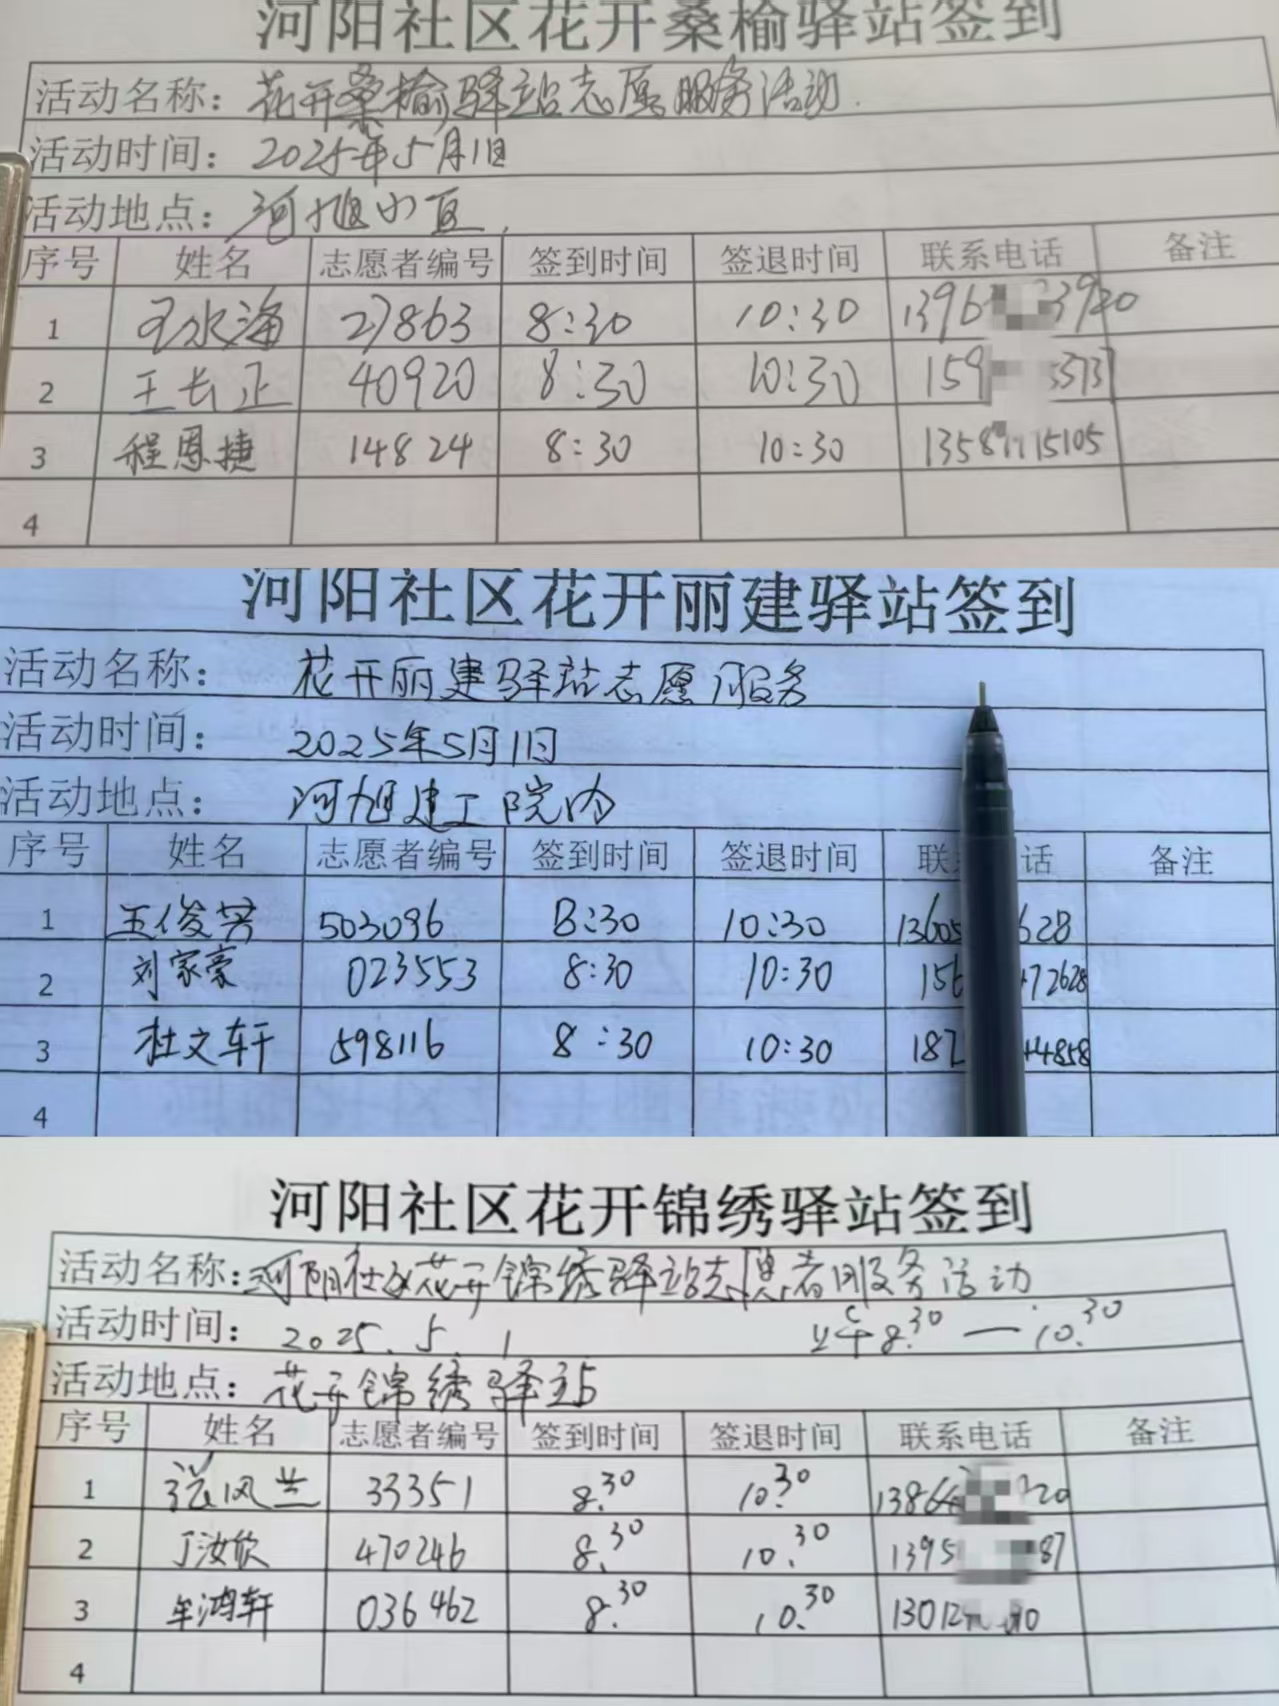 河阳社区花开桑榆驿站签到
活动名称：花开桑榆驿站志愿服务活动.
活动时间：2025年5月1日
活动地点：河旭小区
序号 姓名 志愿者编号 签到时间 签退时间 联系电话 备注
1 王永海 27863 8:30 10:30 1396 3920
2 王长正 40920 8:30 10:30 159
3 程恩捷 14824 8:30 10:30 1358 15105
4
河阳社区花开丽建驿站签到
活动名称：花开丽建驿站志愿服务
活动时间：2025年5月1日
活动地点：河旭建工院内
序号 姓名 志愿者编号 签到时间 签退时间 联 话 备注
1 王俊芳 503096 8:30 10:30 13605 628
2 刘家豪 023553 8:30 10:30 156 72628
3 杜文轩 598116 8:30 10:30 187 4858
4
河阳社区花开锦绣驿站签到
活动名称：河阳社区花开锦绣驿站志愿者服务活动
活动时间：2025.5.1 上午8.30—10.30
活动地点：花开锦绣驿站
序号 姓名 志愿者编号 签到时间 签退时间 联系电话 备注
1 张风兰 33351 8.30 10.30 1386 20
2 丁汝欣 470246 8.30 10.30 1395 87
3 牟鸿轩 036462 8.30 10.30 13012
4